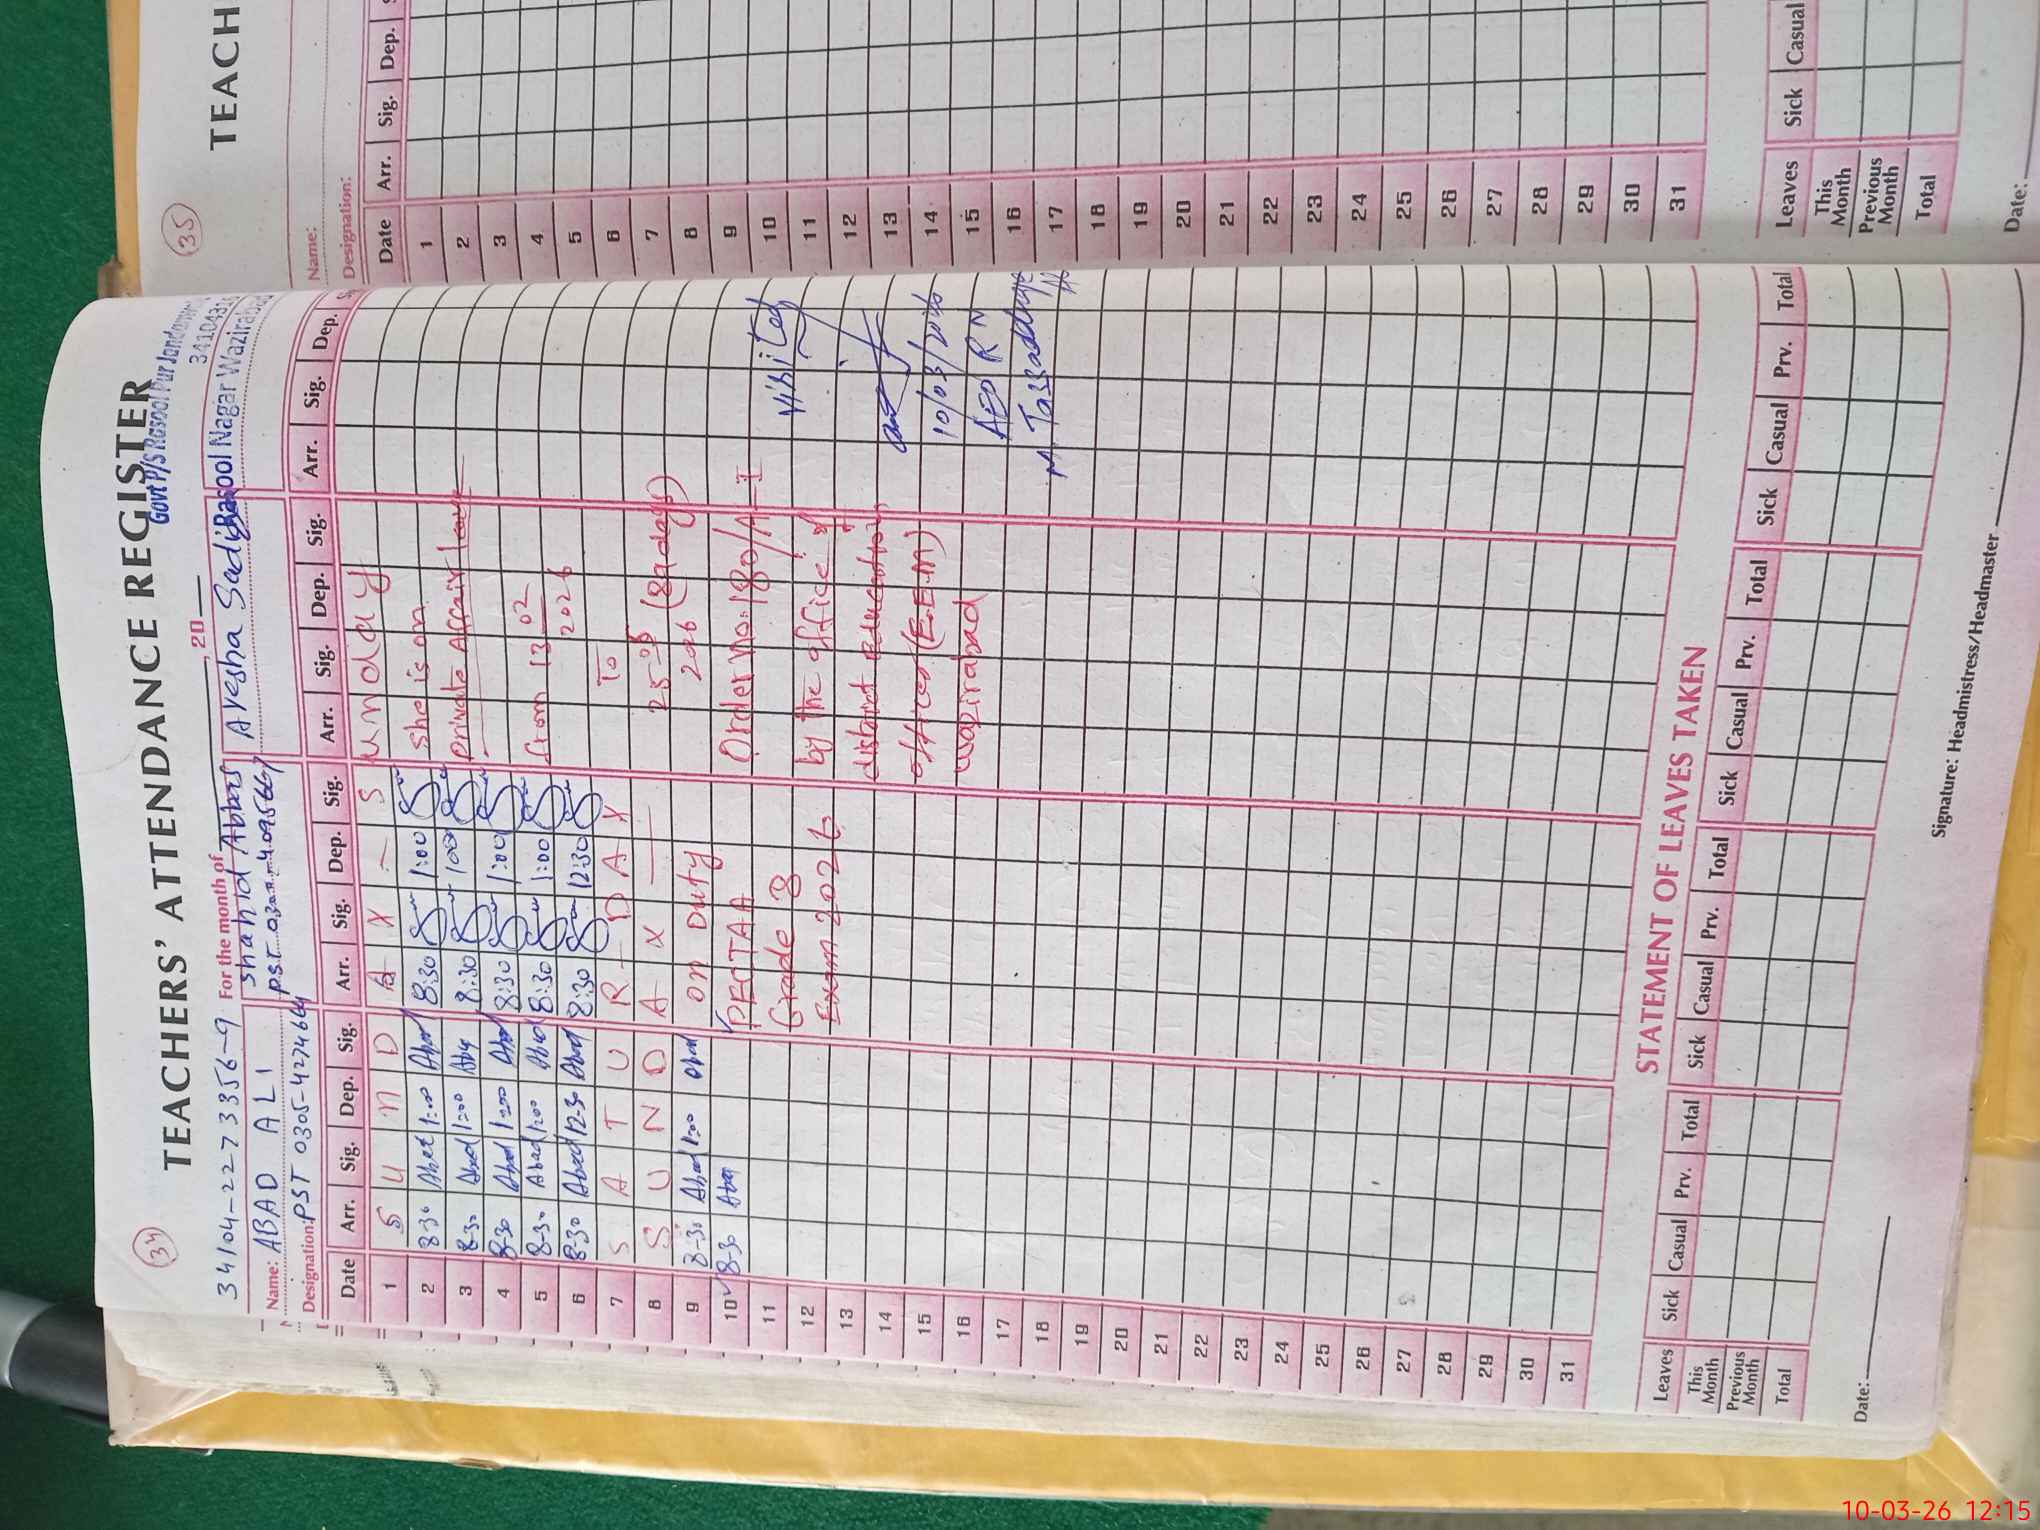 34
TEACHERS' ATTENDANCE REGISTER
Govt P/S Rasool Pur
34104-2273356-9 For the month of , 20
Name: ABAD ALI
Shahid Abbas
Ayesha
Rasool Nagar Wazirabad
Designation: PST 0305-4274664
PST
Date Arr. Sig. Dep. Sig. Arr. Sig. Dep. Sig. Arr. Sig. Dep. Sig. Arr. Sig. Dep.
1 S U N D A Y - Sunday
2 8-30 Abad 1:00 Abad 8:30 1:00 She is on
3 8-30 Abad 1:00 8:30 1:00 Private Affair leave
4 8-30 Abad 1:00 Abad 8:30 1:00
5 8-30 Abad 1:00 Abad 8:30 1:00 from 13 02 2026
6 8-30 Abad 12-30 Abad 8:30 12:30
7 S A T U R D A Y To
8 S U N D A Y 25-05 2026
9 8-30 Abad 1:00 Abad on Duty
10 8-30 Abad PECTAA Order No. 180/A-I
11 Grade 8 Visited
12 Exam 2026 by the office of
13 district education
14 officer (E.E.M) 10/03/2026
15 wazirabad AEO R N
16 M. Tassadduq
17
18
19
20
21
22
23
24
25
26
27
28
29
30
31
STATEMENT OF LEAVES TAKEN
Leaves Sick Casual Prv. Total Sick Casual Prv. Total Sick Casual Prv. Total Sick Casual Prv. Total
This Month
Previous Month
Total
Date:
Signature: Headmistress/Headmaster
35
TEACH
Name:
Designation:
Date Arr. Sig. Dep.
1
2
3
4
5
6
7
8
9
10
11
12
13
14
15
16
17
18
19
20
21
22
23
24
25
26
27
28
29
30
31
Leaves Sick Casual
This Month
Previous Month
Total
Date:
10-03-26 12:15